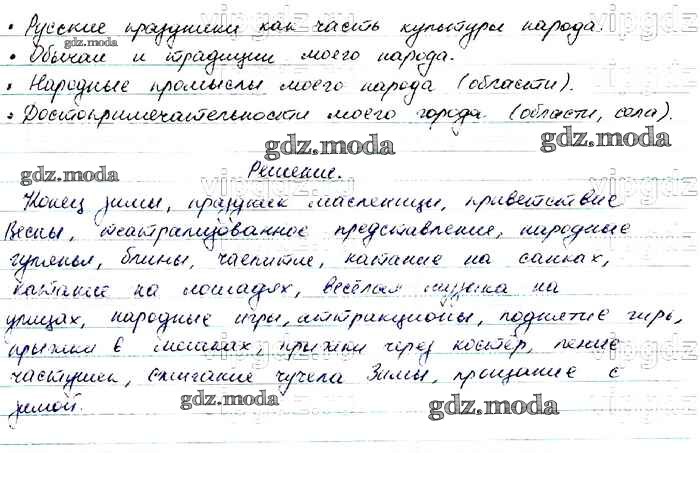 • Русские праздники как часть культуры народа.
• Обычаи и традиции моего народа.
• Народные промыслы моего народа (области).
• Достопримечательности моего города (области, села).
Решение.
Конец зимы, праздник масленицы, приветствие
Весны, театрализованное представление, народные
гулянья, блины, чаепитие, катание на санках,
катание на лошадях, весёлая музыка на
улицах, народные игры, аттракционы, поднятие гирь,
прыжки в мешках, прыжки через костёр, пение
частушек, сжигание чучела Зимы, прощание с
зимой.
gdz.moda
gdz.moda
gdz.moda
gdz.moda
gdz.moda
gdz.moda
vipgdz
vipgdz.ru
vipgdz
vipgdz.ru
vipgdz
vipgdz.ru
vipgdz